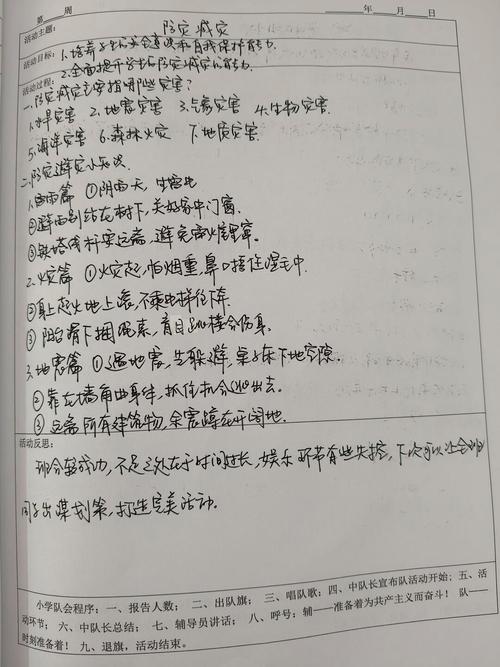 第 周 年 月 日
活动主题: 防灾减灾
活动目标: 1.培养学生的安全意识和自我保护能力.
2.全面提升学生的防灾减灾的能力.
活动过程:
一.防灾减灾主要指哪些灾害?
1.水旱灾害 2.地震灾害 3.气象灾害 4.生物灾害.
5.海洋灾害 6.森林火灾 7.地质灾害.
二.防灾避灾小知识.
1.雷雨篇 ①阴雨天,生雷电
②避雨别站在树下,关好家中门窗.
③铁塔线杆要远离,避免雷火惟里牢.
2.火灾篇 ①火灾起,怕烟重,鼻口捂住湿毛巾.
②身上起火地上滚,不乘电梯往下奔.
③阳台滑下捆绳索,盲目跳楼会伤身.
3.地震篇 ①遇地震,先躲避,桌子床下地空隙.
②靠在墙角曲身体,抓住机会逃出去.
③远离所有建筑物,余震蹲在开阔地.
活动反思:
班会较成功,不足之处在于时间过长,娱乐环节有些失控,下次可以让
同学出谋划策,打造完美活动.
小学队会程序:一、报告人数; 二、出队旗; 三、唱队歌;四、中队长宣布队活动开始;五、活
动环节;六、中队长总结;七、辅导员讲话;八、呼号:辅——准备着为共产主义而奋斗! 队——
时刻准备着! 九、退旗,活动结束。